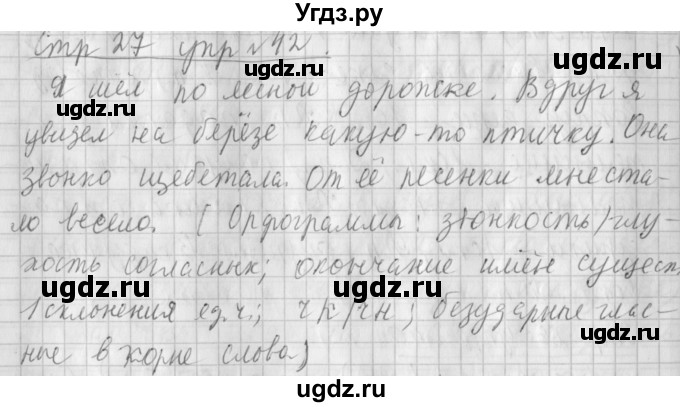 Угдз.ру
стр 27 упр №42.
Я шёл по лесной дорожке. Вдруг я
увидел на берёзе какую-то птичку. Она
звонко щебетала. От её песенки мне ста-
ло весело. (Орфограммы: звонкость/глу-
ugdz.ru ugdz.ru
хость согласных; окончание имён сущест.
ugdz.ru ugdz.ru
1 склонения ед.ч.; чк/чн; безударные глас-
ные в корне слова)
ugdz.ru